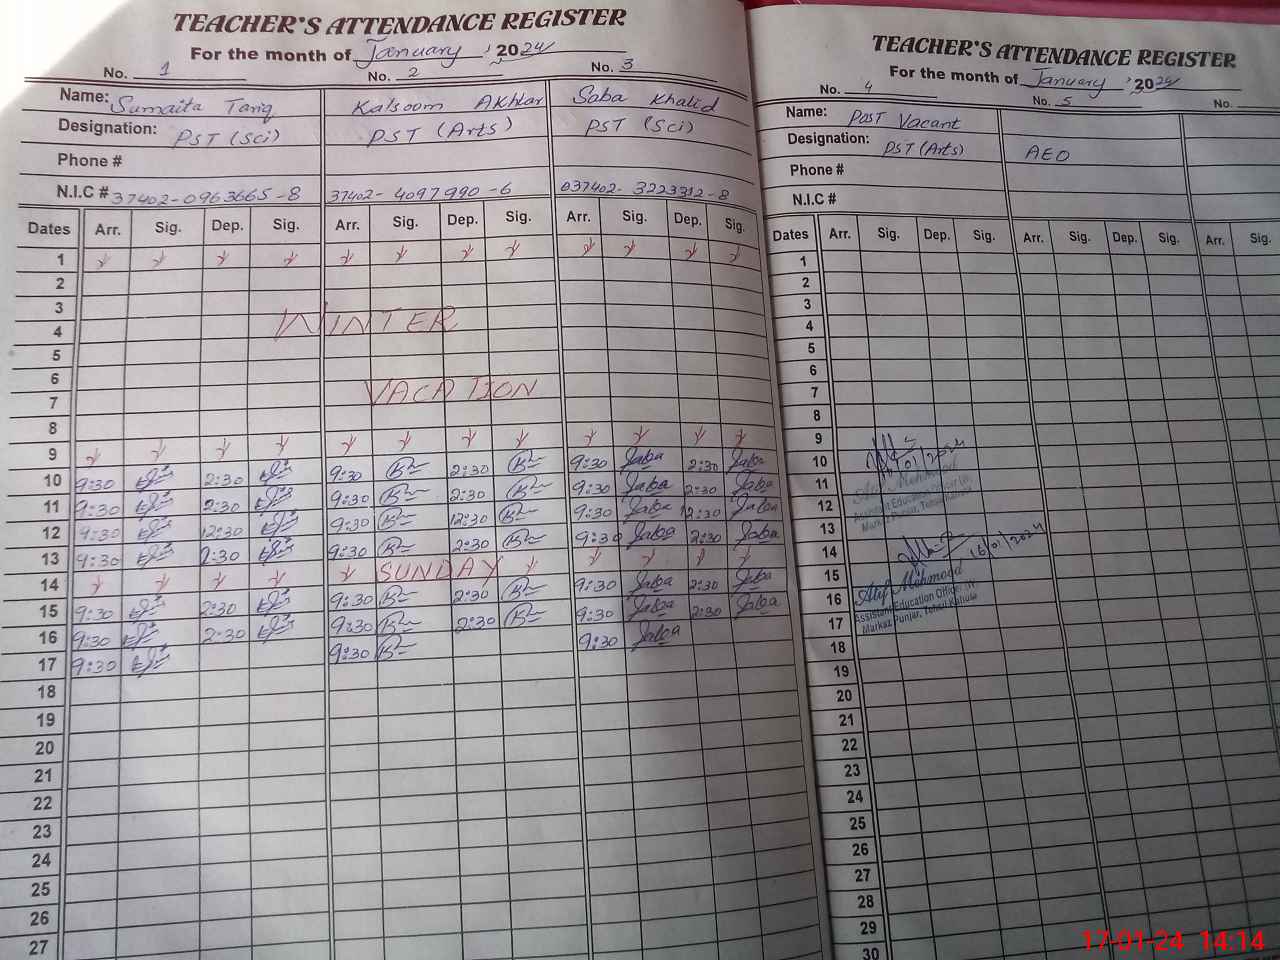 TEACHER'S ATTENDANCE REGISTER
For the month of January, 2024
No. 1 No. 2 No. 3
Name: Sumaita Tariq Kalsoom Akhtar Saba Khalid
Designation: PST (Sci) PST (Arts) PST (Sci)
Phone #
N.I.C # 37402-0963665-8 37402-4097990-6 037402-3223312-8
Dates Arr. Sig. Dep. Sig. Arr. Sig. Dep. Sig. Arr. Sig. Dep. Sig.
1
2
3
WINTER
4
5
6
VACATION
7
8
9
10 9:30 2:30 9:30 2:30 9:30 Saba 2:30 Saba
11 9:30 2:30 9:30 2:30 9:30 Saba 2:30 Saba
12 9:30 12:30 9:30 12:30 9:30 Saba 12:30 Saba
13 9:30 2:30 9:30 2:30 9:30 Saba 2:30 Saba
14 SUNDAY
15 9:30 2:30 9:30 2:30 9:30 Saba 2:30 Saba
16 9:30 2:30 9:30 2:30 9:30 Saba 2:30 Saba
17 9:30 9:30 9:30 Saba
18
19
20
21
22
23
24
25
26
27
TEACHER'S ATTENDANCE REGISTER
For the month of January, 2024
No. 4 No. 5 No.
Name: Post Vacant
Designation: PST (Arts) AEO
Phone #
N.I.C #
Dates Arr. Sig. Dep. Sig. Arr. Sig. Dep. Sig. Arr. Sig.
1
2
3
4
5
6
7
8
9
10
11
12
13
14
15
16
17
18
19
20
21
22
23
24
25
26
27
28
29
30
/01/2024
Atif Mehmood
Assistant Education Officer
Markaz Punjar, Tehsil
16/01/2024
Atif Mehmood
Assistant Education Officer
Markaz Punjar, Tehsil Kahuta
17-01-24 14:14